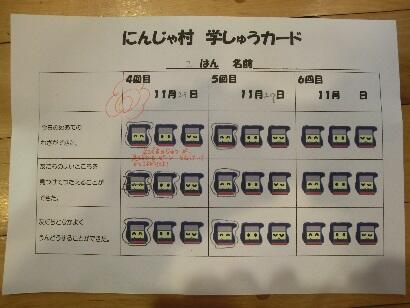 にんじゃ村 学しゅうカード
2 はん 名前
4回目 5回目 6回目
11月 日 11月29日 11月 日
今日のめあての
わざができた。
友だちのよいところを
見つけてつたえることが
できた。
友だちとなかよく
うんどうすることができた。